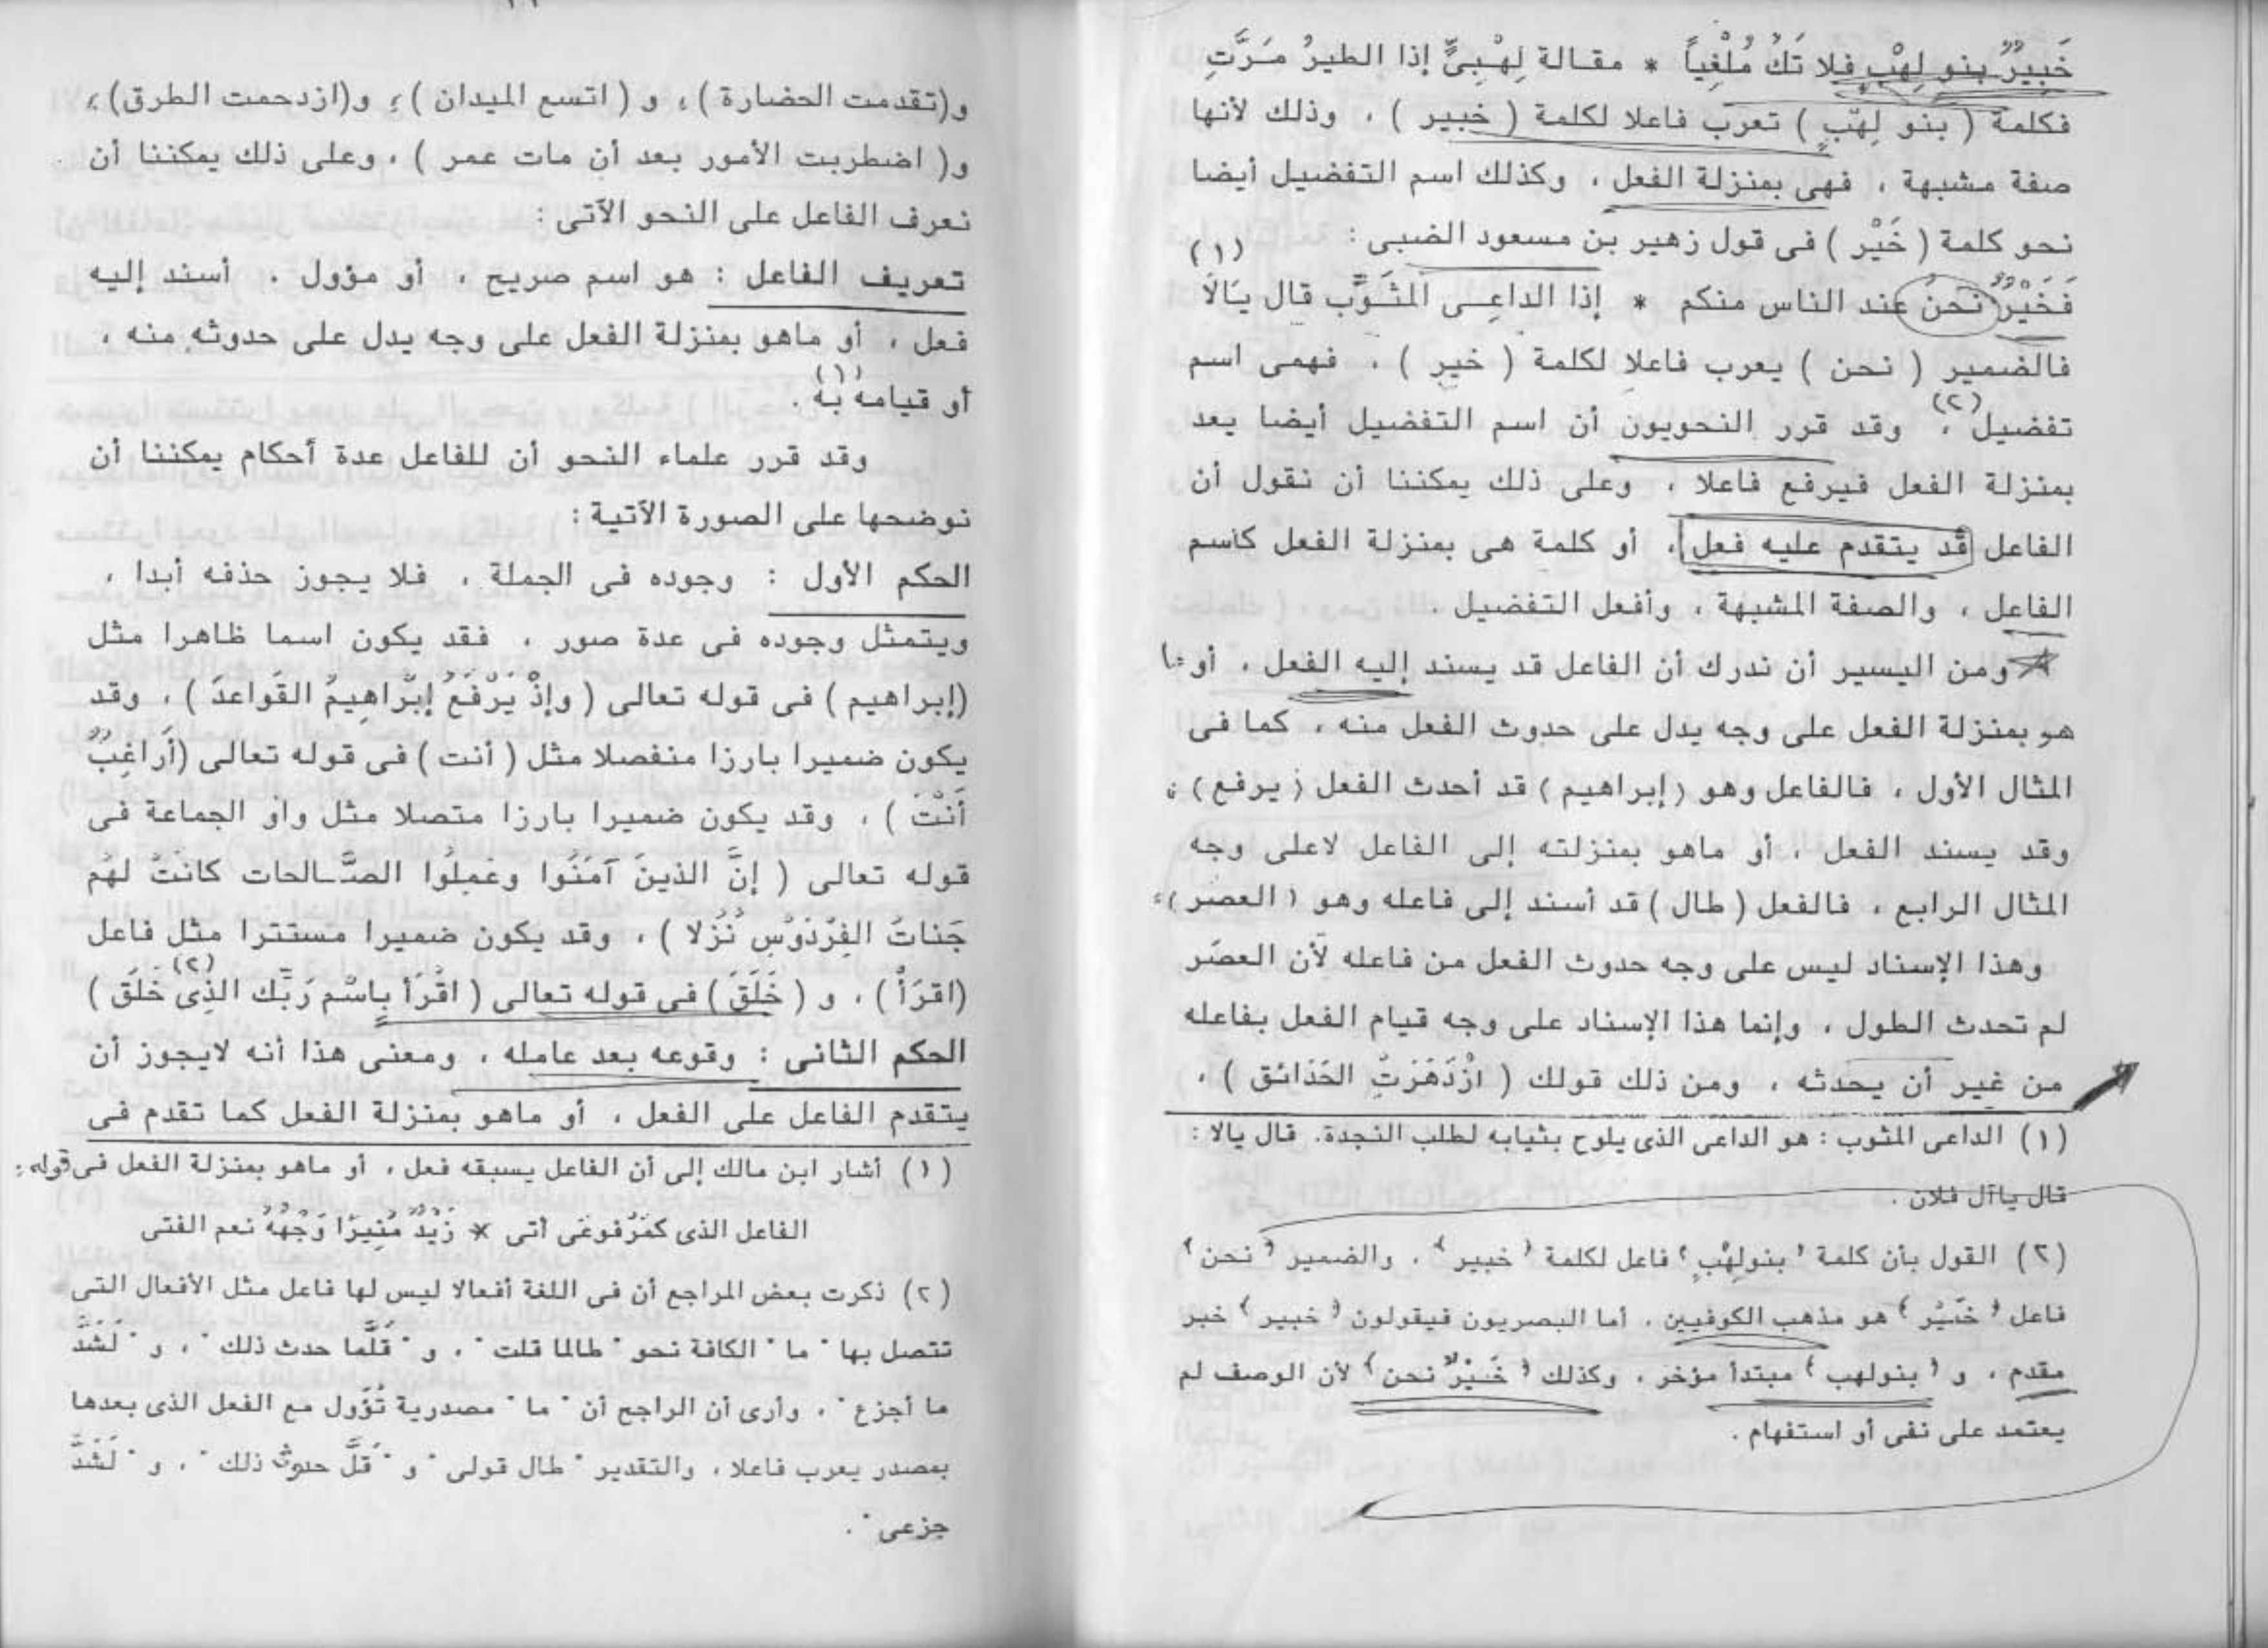 خَبِيرٌ بنو لِهْبٍ فلا تَكُ مُلْغِياً * مقالة لِهْبِىٍّ إذا الطيرُ مَرَّتِ
فكلمة ( بنو لِهْبٍ ) تعرب فاعلا لكلمة ( خبير ) ، وذلك لأنها
صفة مشبهة ، فهى بمنزلة الفعل ، وكذلك اسم التفضيل أيضا
نحو كلمة ( خَيْر ) فى قول زهير بن مسعود الضبى : (١)
فَخَيْرٌ نحنُ عند الناس منكم * إذا الداعى المثَوَّب قال يَالَا
فالضمير ( نحن ) يعرب فاعلا لكلمة ( خير ) ، فهمى اسم
تفضيل (٢) ، وقد قرر النحويون أن اسم التفضيل أيضا يعد
بمنزلة الفعل فيرفع فاعلا ، وعلى ذلك يمكننا أن نقول أن
الفاعل قد يتقدم عليه فعل ، أو كلمة هى بمنزلة الفعل كأسم
الفاعل ، والصفة المشبهة ، وأفعل التفضيل .
ومن اليسير أن ندرك أن الفاعل قد يسند إليه الفعل ، أو ما
هو بمنزلة الفعل على وجه يدل على حدوث الفعل منه ، كما فى
المثال الأول ، فالفاعل وهو ( إبراهيم ) قد أحدث الفعل ( يرفع ) ،
وقد يسند الفعل ، أو ماهو بمنزلته إلى الفاعل لاعلى وجه
المثال الرابع ، فالفعل ( طال ) قد أسند إلى فاعله وهو ( العصر ) ،
وهذا الإسناد ليس على وجه حدوث الفعل من فاعله لأن العصَر
لم تحدث الطول ، وإنما هذا الإسناد على وجه قيام الفعل بفاعله
من غير أن يحدثه ، ومن ذلك قولك ( ازْدَهَرَتِ الحَدَائق ) ،
(١) الداعى المثوب : هو الداعى الذى يلوح بثيابه لطلب النجدة. قال يالا :
قال ياآل فلان .
(٢) القول بأن كلمة ( بنولِهْبٍ ) فاعل لكلمة ( خبير ) ، والضمير ( نحن )
فاعل ( خَيْر ) هو مذهب الكوفيين ، أما البصريون فيقولون ( خبير ) خبر
مقدم ، و ( بنولهب ) مبتدأ مؤخر ، وكذلك ( خَيْرٌ نحن ) لأن الوصف لم
يعتمد على نفى أو استفهام .
و(تقدمت الحضارة ) ، و ( اتسع الميدان ) ، و(ازدحمت الطرق) ،
و( اضطربت الأمور بعد أن مات عمر ) ، وعلى ذلك يمكننا أن
نعرف الفاعل على النحو الآتى :
تعريف الفاعل : هو اسم صريح ، أو مؤول ، أسند إليه
فعل ، أو ماهو بمنزلة الفعل على وجه يدل على حدوثه منه ،
أو قيامه به (١) .
وقد قرر علماء النحو أن للفاعل عدة أحكام يمكننا أن
نوضحها على الصورة الآتية :
الحكم الأول : وجوده فى الجملة ، فلا يجوز حذفه أبدا ،
ويتمثل وجوده فى عدة صور ، فقد يكون اسما ظاهرا مثل
(إبراهيم ) فى قوله تعالى ( وإذْ يَرْفَعُ إبْراهِيمُ القَواعدَ ) ، وقد
يكون ضميرا بارزا منفصلا مثل ( أنت ) فى قوله تعالى (أَراغِبٌ
أَنْتَ ) ، وقد يكون ضميرا بارزا متصلا مثل واو الجماعة فى
قوله تعالى ( إنَّ الذينَ آمَنُوا وعَمِلُوا الصَّالحات كانَتْ لهُم
جَناتُ الفِرْدَوْسِ نُزُلا ) ، وقد يكون ضميرا مستترا مثل فاعل
(اقرَأْ ) ، و ( خَلَقَ ) فى قوله تعالى ( اقْرَأ بِاسْم رَبِّك الذِى خَلَق ) (٢)
الحكم الثانى : وقوعه بعد عامله ، ومعنى هذا أنه لايجوز أن
يتقدم الفاعل على الفعل ، أو ماهو بمنزلة الفعل كما تقدم فى
(١) أشار ابن مالك إلى أن الفاعل يسبقه فعل ، أو ماهو بمنزلة الفعل فى قوله :
الفاعل الذى كمَرْفوعَى أتى * زَيْدٌ مُنِيرًا وَجْهُهُ نعم الفتى
(٢) ذكرت بعض المراجع أن فى اللغة أفعالا ليس لها فاعل مثل الأفعال التى
تتصل بها " ما " الكافة نحو " طالما قلت " ، و " قَلَّما حدث ذلك " ، و " لَشَدَّ
ما أجزع " ، وأرى أن الراجح أن " ما " مصدرية تُؤَول مع الفعل الذى بعدها
بمصدر يعرب فاعلا ، والتقدير " طال قولى " و " قَلَّ حدوث ذلك " ، و " لَشَدَّ
جزعى " .